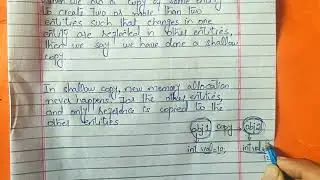 when we do a copy of some entity
to create two or more than two
entities such that changes in one
entity are reflected in other entities,
then we say we have done a shallow
copy
In shallow copy, new memory allocation
never happens for the other entities,
and only reference is copied to the
other entities
obj1 copy obj2
int val=10, int val=